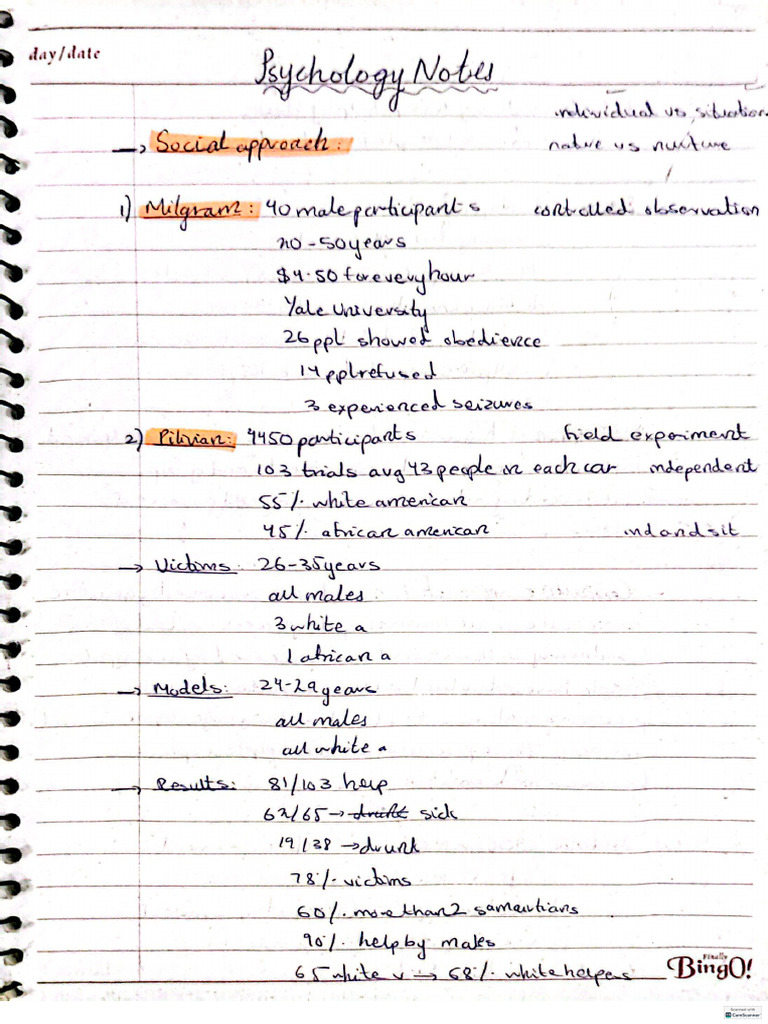 day/date
Psychology Notes
individual vs situation
→ Social approach:
nature vs nurture
1) Milgram: 40 male participants controlled observation
20-50 years
$4.50 for every hour
Yale University
26 ppl showed obedience
14 ppl refused
3 experienced seizures
2) Pilivian: 4450 participants field experiment
103 trials avg 43 people in each car independent
55% white american
45% african american ind and sit
→ Victims: 26-35 years
all males
3 white a
1 african a
→ Models: 24-29 years
all males
all white a
→ Results: 81/103 help
62/65 → drunk sick
19/38 → drunk
78% victims
60% more than 2 samaritians
90% help by males
65 white v → 68% white helpers
Finally
BingO!
Scanned with
CamScanner